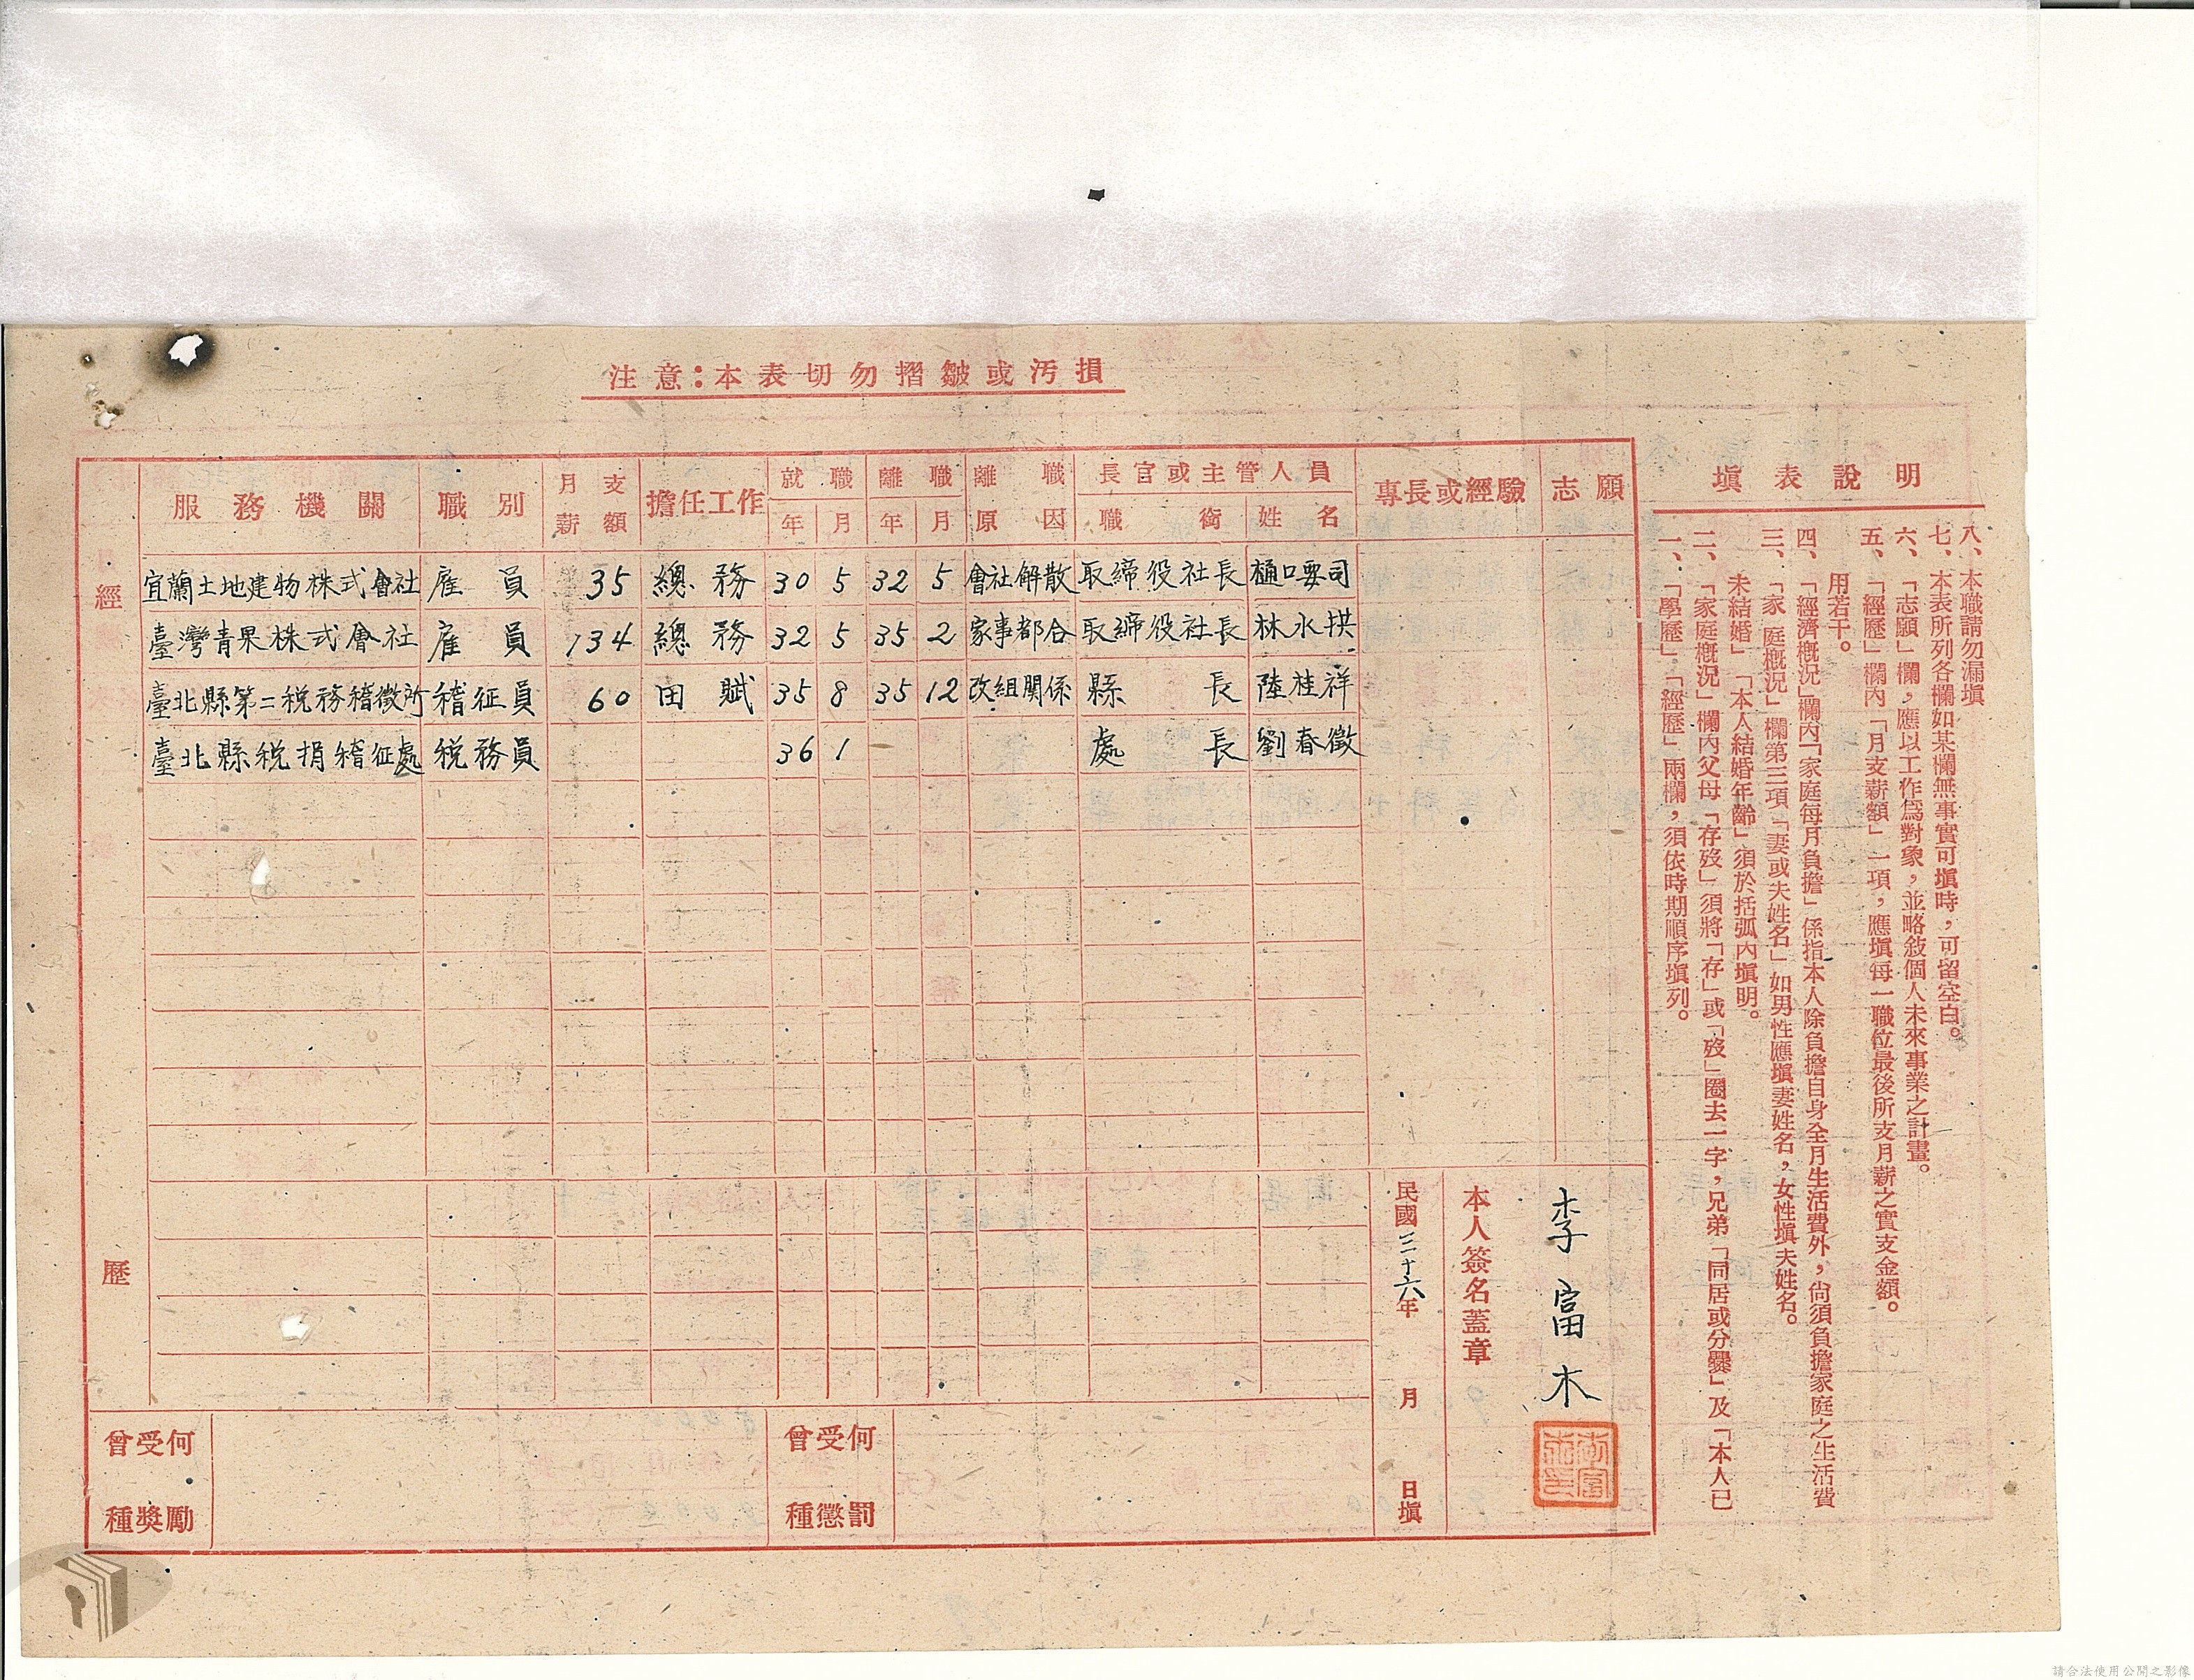 注意：本表切勿摺皺或汚損
經歷
服務機關 職別 月支薪額 擔任工作 就職 年 月 離職 年 月 離職原因 長官或主管人員 職銜 姓名 專長或經驗 志願
宜蘭土地建物株式會社 雇員 35 總務 30 5 32 5 會社解散 取締役社長 樋口要司
臺灣青果株式會社 雇員 134 總務 32 5 35 2 家事都合 取締役社長 林水拱
臺北縣第二税務稽徵所 稽征員 60 田賦 35 8 35 12 改組関係 縣長 陸桂祥
臺北縣税捐稽征處 税務員 36 1 處長 劉春徵
曾受何種獎勵
曾受何種懲罰
民國三十六年 月 日塡
本人簽名蓋章
李富木
塡表說明
一、「學歷」「經歷」兩欄，須依時期順序塡列。
二、「家庭槪況」欄內父母「存歿」須將「存」或「歿」圈去一字，兄弟「同居或分爨」及「本人已
未結婚」「本人結婚年齡」須於括弧內塡明。
三、「家庭槪況」欄第三項「妻或夫姓名」如男性應塡妻姓名，女性塡夫姓名。
四、「經濟槪況」欄內「家庭每月負擔」係指本人除負擔自身全月生活費外，尙須負擔家庭之生活費
用若干。
五、「經歷」欄內「月支薪額」一項，應塡每一職位最後所支月薪之實支金額。
六、「志願」欄，應以工作爲對象，並略敍個人未來事業之計畫。
七、本表所列各欄如某欄無事實可塡時，可留空白。
八、本職請勿漏塡
請合法使用公開之影像